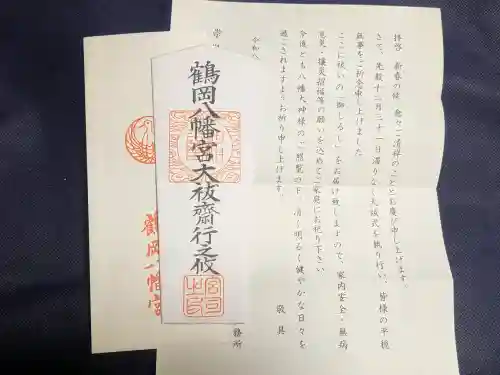 拝啓 新春の候 愈々ご清祥のこととお慶び申し上げます。
さて、先般十二月三十一日滞りなく大祓式を執り行い、皆様の平穏
無事をご祈念申し上げました。
ここに祓いの「御しるし」をお届け致しますので、家内安全・無病
息災・攘災招福等の願いを込めてご家庭にお祀り下さい。
今後とも八幡大神様のご照覧の下、清く明るく健やかな日々を
過ごされますようお祈り申し上げます。
敬具
令和八
務所
鶴岡八幡宮大祓齋行之攸
鶴岡八幡宮